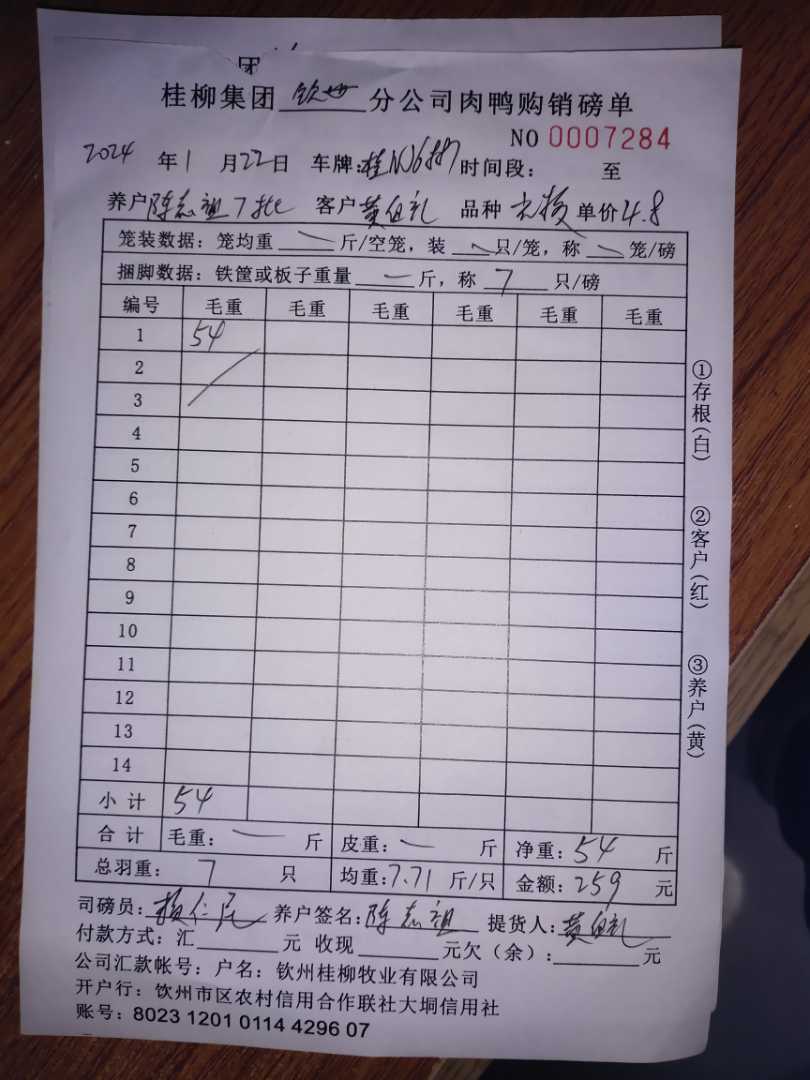 团
桂柳集团钦州分公司肉鸭购销磅单
NO 0007284
2024年1月22日 车牌:桂N 时间段: 至
养户陈志祖7批 客户黄 礼 品种 单价4.8
笼装数据:笼均重 一 斤/空笼,装 一 只/笼,称 一 笼/磅
捆脚数据:铁筐或板子重量 一 斤,称 7 只/磅
编号 毛重 毛重 毛重 毛重 毛重 毛重
1 54
2
3
4
5
6
7
8
9
10
11
12
13
14
小计 54
合计 毛重: 一 斤 皮重: 一 斤 净重:54 斤
总羽重: 7 只 均重:7.71 斤/只 金额:259 元
司磅员: 仁 养户签名:陈志祖 提货人:黄 礼
付款方式:汇 元 收现 元欠(余): 元
公司汇款帐号:户名:钦州桂柳牧业有限公司
开户行:钦州市区农村信用合作联社大垌信用社
账号:8023 1201 0114 4296 07
①存根(白)
②客户(红)
③养户(黄)